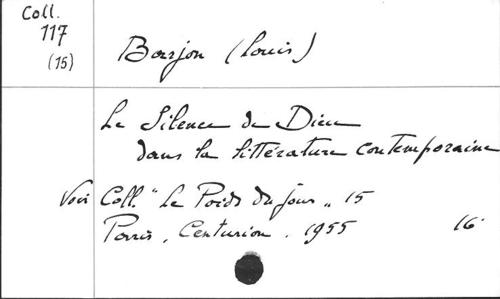 Coll.
117
(15)
Barjon (Louis)
Le Silence de Dieu
dans la littérature contemporaine
Voir Coll. "Le Poids du jour" 15
Paris, Centurion. 1955 16°